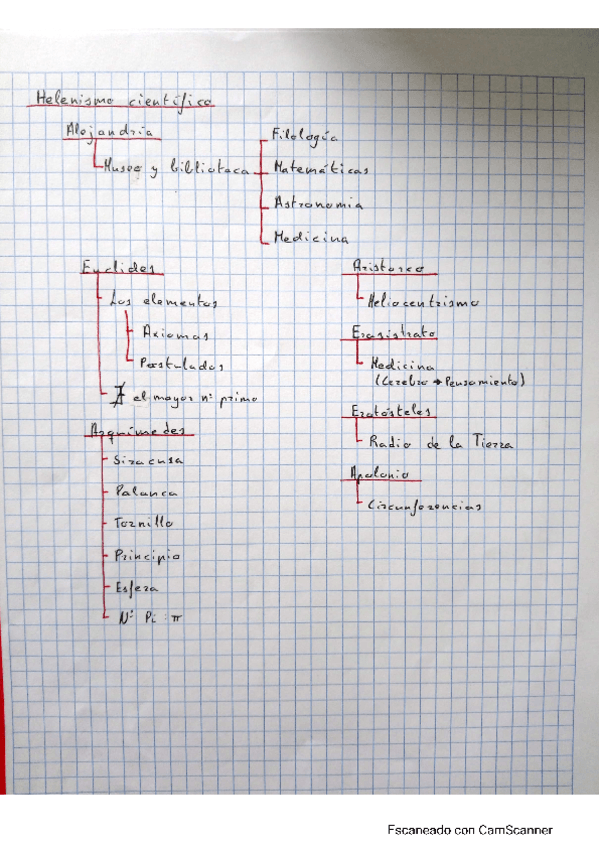 Helenismo científico
Alejandría
Museo y biblioteca
Filología
Matemáticas
Astronomia
Medicina
Euclides
Los elementos
Axiomas
Postulados
∄ el mayor nº primo
Arquímedes
Siracusa
Palanca
Tornillo
Principio
Esfera
Nº Pi : π
Aristarco
Heliocentrismo
Erasistrato
Medicina
(Cerebro → Pensamiento)
Eratósteles
Radio de la Tierra
Apolonio
Circunferencias
Escaneado con CamScanner